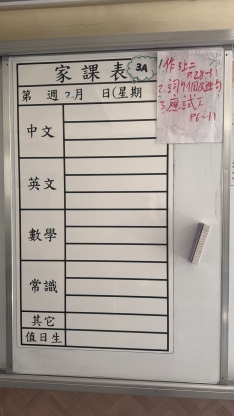 家課表
3A
第 週 月 日(星期
中文
英文
數學
常識
其它
值日生
1.作
P28-31
2.詞
3.應試工
P6-11